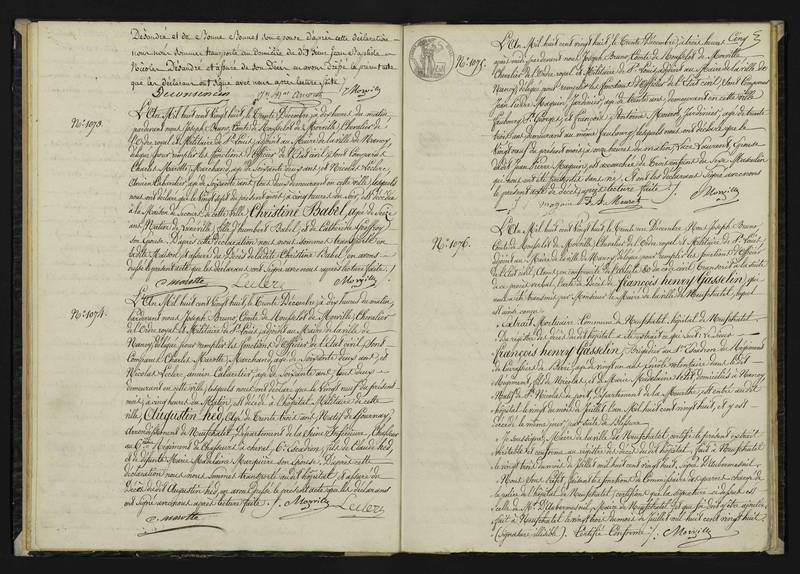 Désandré et de Bonne Bonnet son épouse d'après cette déclaration
nous nous sommes transporté au domicile du dit Sieur Jean Baptiste
Nicolas Désandré et assuré de son Décès en avons dressé le présent acte
que les déclarans ont signé avec nous après lecture faite /.
Morville
N.° 1073.
L'An Mil huit cent vingt huit, le trente Décembre à dix heures du matin,
pardevant nous Joseph Bruno Comte de Monfflet de Morville, Chevalier de
l'Ordre royal et Militaire de S.t Louis, adjoint au Maire de la ville de Nancy,
délégué pour remplir les fonctions d'Officier de l'Etat civil, sont Comparus
Charles Marotte, Marchand, agé de soixante deux ans, et Nicolas Leclerc,
ancien Cabaretier, agé de soixante ans, tous deux demeurant en cette ville, lesquels
nous ont déclaré que le vingt sept du présent mois, à cinq heures du soir, est décédée
à la Maison de Secours de cette ville, Christine Babel, agée de seize
ans, Native de Luneville, fille d'humbert Babel, et de Catherine
son Epouse. D'après cette Déclaration nous nous sommes transporté en
la dite Maison, et assuré du Décès de ladite Christine Babel, en avons
dressé le présent acte que les déclarans ont signé avec nous après lecture faite /.
Marotte Leclerc Morville
N.° 1074.
L'An Mil huit cent vingt huit, le trente Décembre, à dix heures du matin,
pardevant nous Joseph Bruno, Comte de Monfflet de Morville, Chevalier
de l'Ordre royal et Militaire de S.t Louis, adjoint au Maire de la ville de
Nancy, délégué pour remplir les fonctions d'Officier de l'Etat civil, sont
Comparus Charles Marotte, Marchand, agé de soixante deux ans, et
Nicolas Leclerc, ancien Cabaretier, agé de soixante ans, tous deux
demeurant en cette ville, lesquels nous ont déclaré que le vingt neuf du présent
mois, à cinq heures du Matin, est décédé à l'hôpital Militaire de cette
ville, Augustin hed, agé de trente trois ans, Natif de
Arrondissement de Neufchatel, Département de la Seine Inférieure, Chasseur
au 6.me Régiment de Chasseurs à cheval, 6.e Escadron, fils de Claude hed,
et de défunte Marie Madelaine son épouse. D'après cette
déclaration nous nous sommes transporté au dit hôpital, et assuré du
Décès du dit Augustin hed, en avons dressé le présent acte que les déclarans
ont signé avec nous après lecture faite. /. Morville Leclerc
Marotte
N.° 1075.
L'An Mil huit cent vingt huit, le trente Décembre, à trois heures
pardevant nous Joseph Bruno, Comte de Monfflet de Morville
Chevalier de l'Ordre royal et Militaire de S.t Louis, adjoint au Maire de la ville de
Nancy, délégué pour remplir les fonctions d'Officier de l'Etat civil, sont Comparus
Jean Pierre Magnin, Jardinier, agé de trente ans, demeurant en cette ville
Faubourg S.t Georges, et François Antoine Jardinier, agé de trente
trois ans, demeurant au même faubourg, lesquels nous ont déclaré que le
vingt neuf du présent mois, à onze heures du matin, épouse
dudit Jean Pierre Magnin, est accouchée d'un Enfant du Sexe Masculin
qui nous a été présenté sans vie. Et ont les déclarans signé avec nous
le présent acte de décès, après lecture faite. /. Morville
N.° 1076.
L'An Mil huit cent vingt huit, le trente un Décembre, Nous Joseph Bruno,
Comte de Monfflet de Morville, Chevalier de l'Ordre royal et Militaire de S.t Louis,
adjoint au Maire de la ville de Nancy, délégué pour remplir les fonctions d'Officier
de l'Etat civil, avons en conformité de l'article du Code civil, transcrit à la suite
de ce procès verbal, l'acte de Décès de François henry Gasselin, qui
nous a été transmis par Monsieur le Maire de la ville de Neufchatel, lequel
est ainsi conçu.
Extrait Mortuaire. Commune de Neufchatel. hôpital de Neufchatel.
Du registre des Décès du dit hôpital a été extrait ce qui suit :
François henry Gasselin, Brigadier au Escadron du Régiment
de Cuirassiers de Berri, agé de vingt un ans, Enrolé volontaire dans le dit
Régiment, fils de Nicolas, et de Marie Madelaine Petit, domiciliés à Nancy,
Natif de S.t Nicolas de port, Département de la Meurthe, est entré au dit
hôpital le vingt du mois de Juillet, L'an Mil huit cent vingt huit, et y est
décédé le même jour par suite de blessure.
Je soussigné, Maire de la ville de Neufchatel, certifie le présent extrait
véritable et conforme au registre des décès du dit hôpital. fait à Neufchatel
le vingt du mois de juillet mil huit cent vingt huit,
Nous Sous Préfet, faisant les fonctions de Commissaire des guerres chargé de
la police de l'hôpital de Neufchatel, certifions que la signature ci dessus est
celle de M. Maire de Neufchatel, et que foi doit y être ajoutée.
fait à Neufchatel le vingt du mois de Juillet mil huit cent vingt huit
(signature illisible). Certifié Conforme. /. Morville